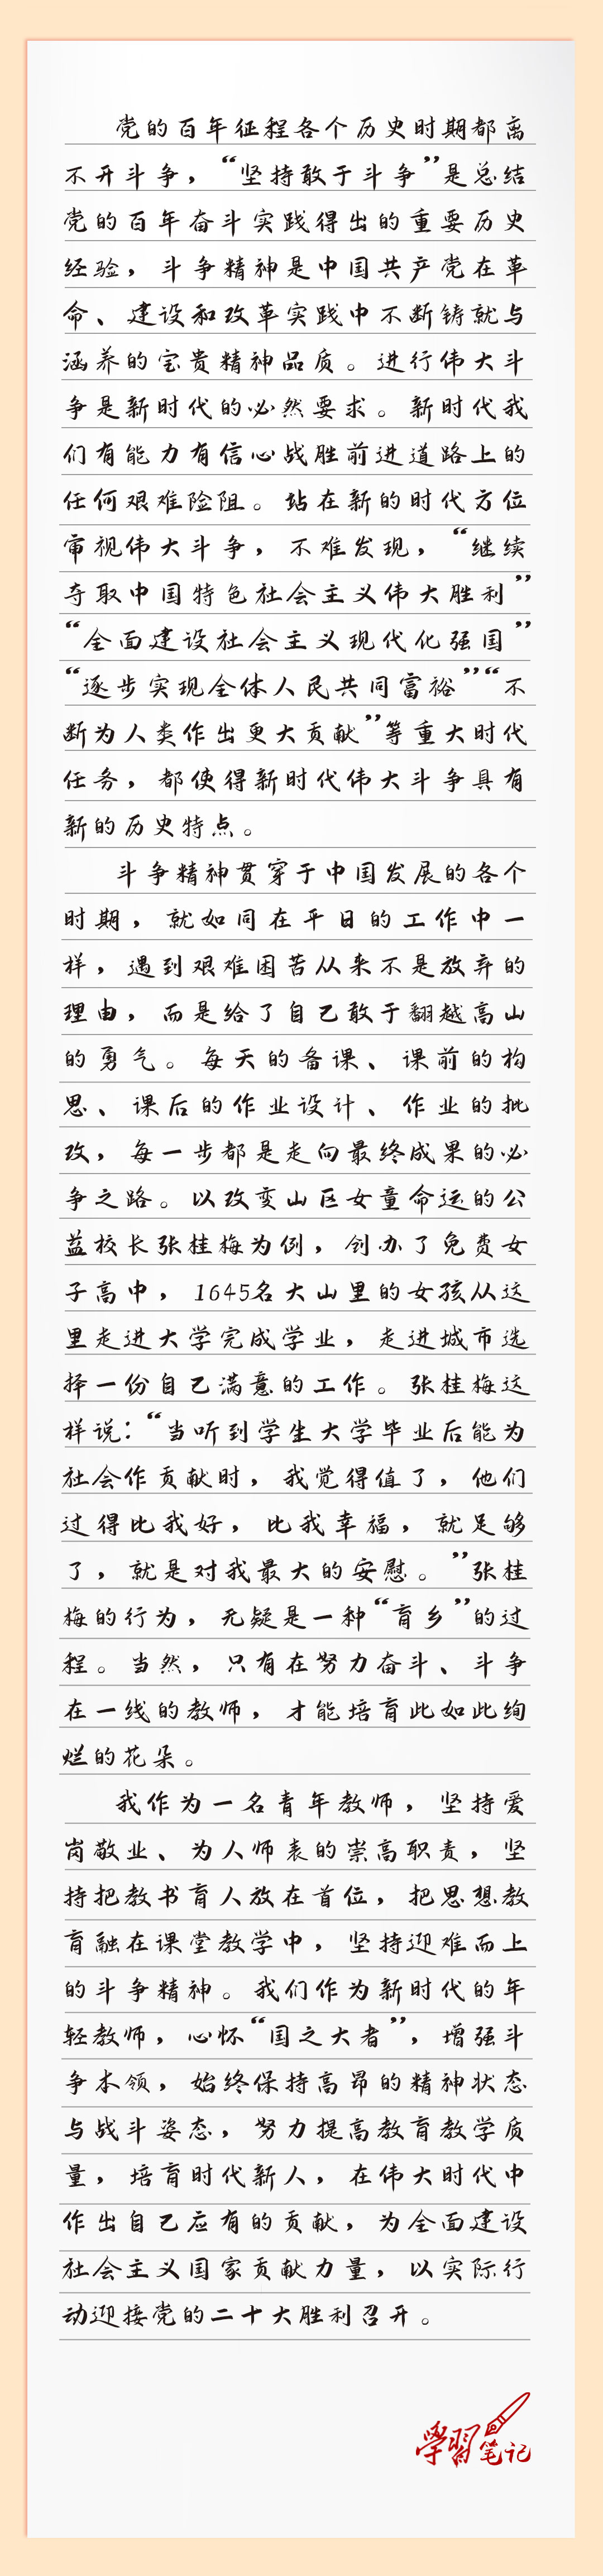 党的百年征程各个历史时期都离
不开斗争，“坚持敢于斗争”是总结
党的百年奋斗实践得出的重要历史
经验，斗争精神是中国共产党在革
命、建设和改革实践中不断铸就与
涵养的宝贵精神品质。进行伟大斗
争是新时代的必然要求。新时代我
们有能力有信心战胜前进道路上的
任何艰难险阻。站在新的时代方位
审视伟大斗争，不难发现，“继续
夺取中国特色社会主义伟大胜利”
“全面建设社会主义现代化强国”
“逐步实现全体人民共同富裕”“不
断为人类作出更大贡献”等重大时代
任务，都使得新时代伟大斗争具有
新的历史特点。
斗争精神贯穿于中国发展的各个
时期，就如同在平日的工作中一
样，遇到艰难困苦从来不是放弃的
理由，而是给了自己敢于翻越高山
的勇气。每天的备课、课前的构
思、课后的作业设计、作业的批
改，每一步都是走向最终成果的必
争之路。以改变山区女童命运的公
益校长张桂梅为例，创办了免费女
子高中，1645名大山里的女孩从这
里走进大学完成学业，走进城市选
择一份自己满意的工作。张桂梅这
样说：“当听到学生大学毕业后能为
社会作贡献时，我觉得值了，他们
过得比我好，比我幸福，就足够
了，就是对我最大的安慰。”张桂
梅的行为，无疑是一种“育乡”的过
程。当然，只有在努力奋斗、斗争
在一线的教师，才能培育此如此绚
烂的花朵。
我作为一名青年教师，坚持爱
岗敬业、为人师表的崇高职责，坚
持把教书育人放在首位，把思想教
育融在课堂教学中，坚持迎难而上
的斗争精神。我们作为新时代的年
轻教师，心怀“国之大者”，增强斗
争本领，始终保持高昂的精神状态
与战斗姿态，努力提高教育教学质
量，培育时代新人，在伟大时代中
作出自己应有的贡献，为全面建设
社会主义国家贡献力量，以实际行
动迎接党的二十大胜利召开。
學習笔记